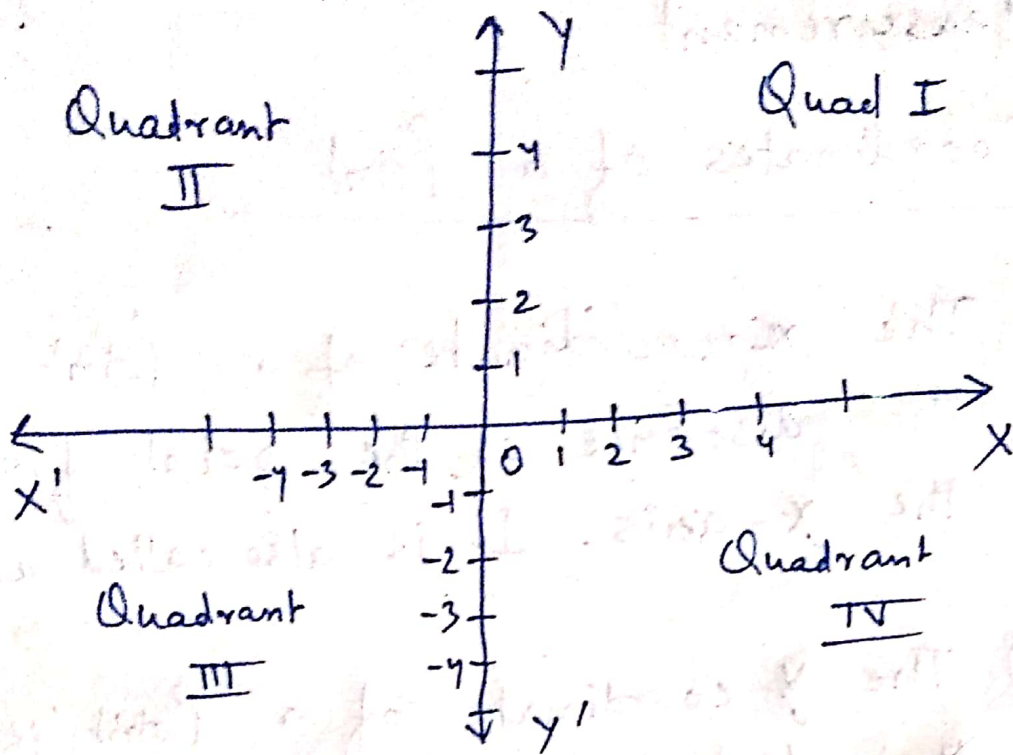 Y
Quadrant
II
Quad I
4
3
2
1
-4 -3 -2 -1 0 1 2 3 4
X' X
-1
-2
-3
-4
Quadrant
III
Quadrant
IV
Y'